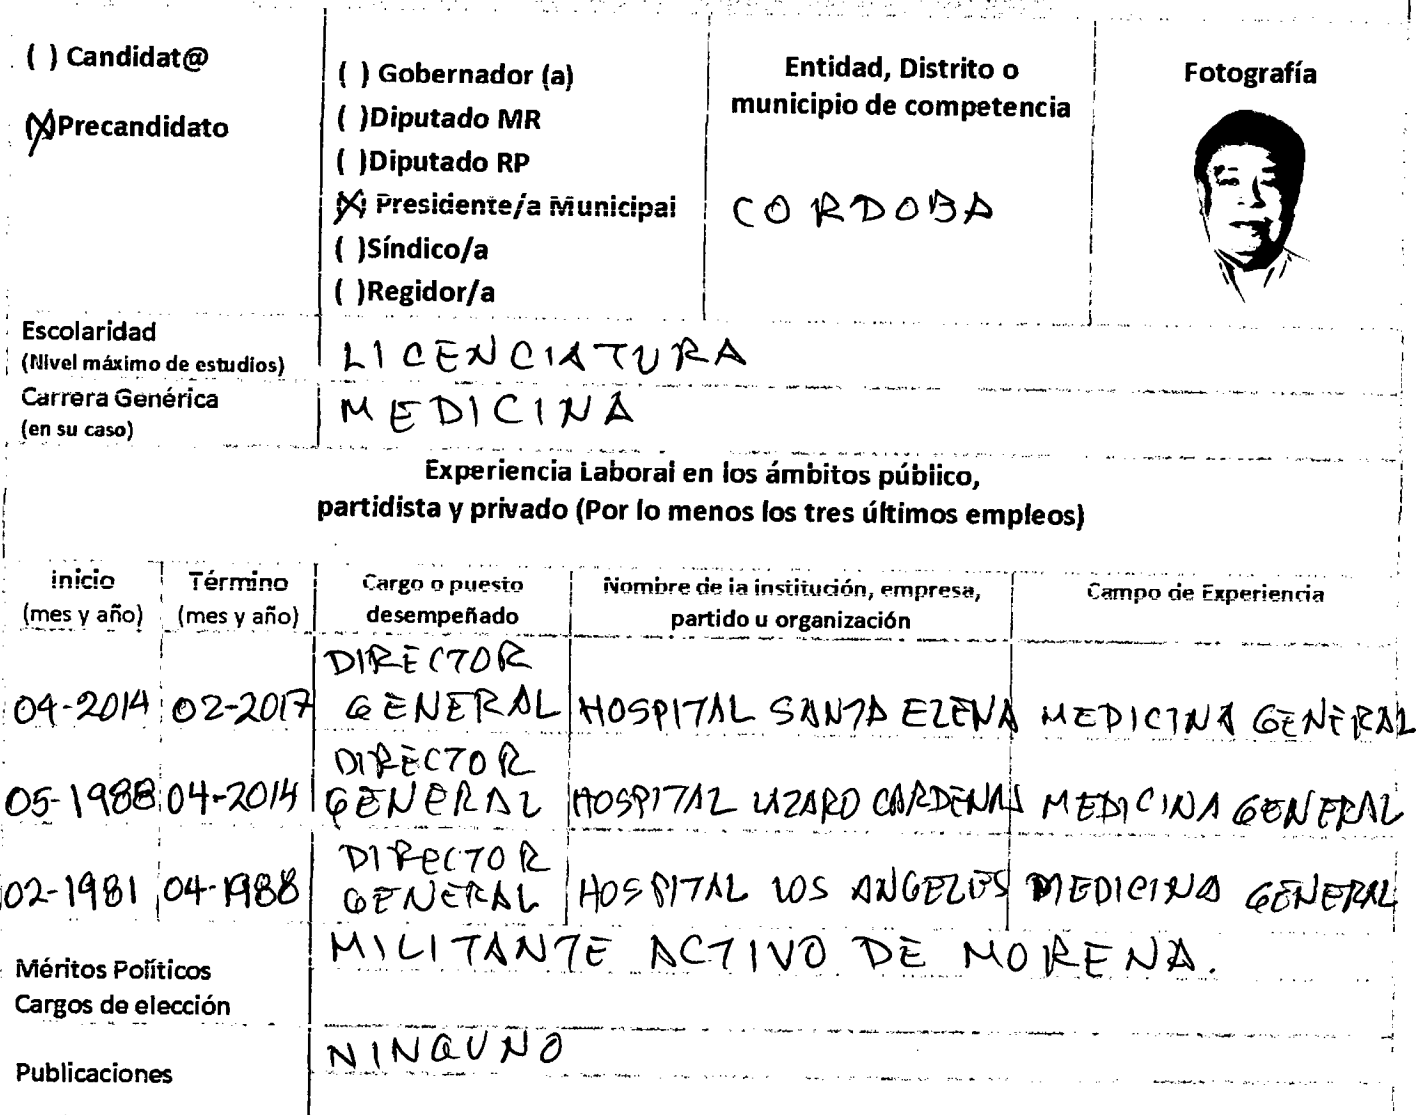 ( ) Candidat@
(X)Precandidato
( ) Gobernador (a)
( )Diputado MR
( )Diputado RP
(X) Presidente/a Municipal
( )Síndico/a
( )Regidor/a
Entidad, Distrito o
municipio de competencia
CORDOBA
Fotografía
Escolaridad
(Nivel máximo de estudios)
LICENCIATURA
Carrera Genérica
(en su caso)
MEDICINA
Experiencia Laboral en los ámbitos público,
partidista y privado (Por lo menos los tres últimos empleos)
Inicio
(mes y año)
Término
(mes y año)
Cargo o puesto
desempeñado
Nombre de la institución, empresa,
partido u organización
Campo de Experiencia
04-2014 02-2017 DIRECTOR GENERAL HOSPITAL SANTA ELENA MEDICINA GENERAL
05-1988 04-2014 DIRECTOR GENERAL HOSPITAL LAZARO CARDENAS MEDICINA GENERAL
02-1981 04-1988 DIRECTOR GENERAL HOSPITAL LOS ANGELES MEDICINA GENERAL
Méritos Políticos
Cargos de elección
MILITANTE ACTIVO DE MORENA.
Publicaciones
NINGUNO